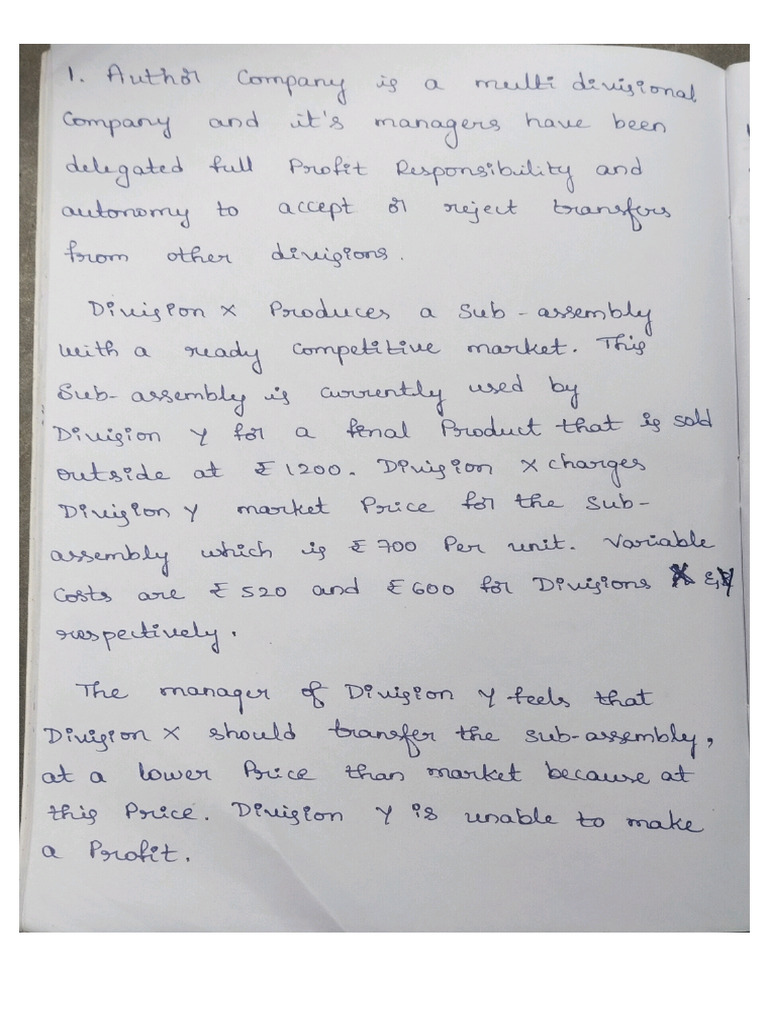 1. Author Company is a multi divisional
Company and it's managers have been
delegated full Profit Responsibility and
autonomy to accept or reject transfers
from other divisions.
Division X Produces a Sub-assembly
with a ready competitive market. This
Sub-assembly is currently used by
Division Y for a final Product that is sold
outside at ₹1200. Division X charges
Division Y market Price for the Sub-
assembly which is ₹700 Per unit. Variable
Costs are ₹520 and ₹600 for Divisions X & Y
respectively.
The manager of Division Y feels that
Division X should transfer the sub-assembly,
at a lower Price than market because at
this Price. Division Y is unable to make
a Profit.